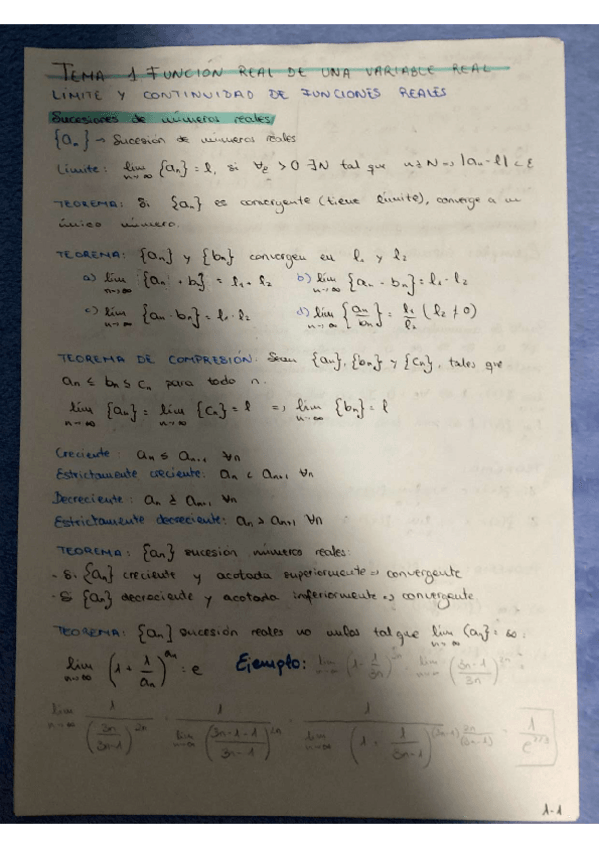 TEMA 1 FUNCIÓN REAL DE UNA VARIABLE REAL
LÍMITE Y CONTINUIDAD DE FUNCIONES REALES
Sucesiones de números reales
{aₙ} → Sucesión de números reales
Límite: lim n→∞ {aₙ} = l, si ∀ε > 0 ∃N tal que n ≥ N ⇒ |aₙ - l| < ε
TEOREMA: Si {aₙ} es convergente (tiene límite), converge a un
único número.
TEOREMA: {aₙ} y {bₙ} convergen en l₁ y l₂
a) lim n→∞ {aₙ + bₙ} = l₁ + l₂ b) lim n→∞ {aₙ - bₙ} = l₁ - l₂
c) lim n→∞ {aₙ · bₙ} = l₁ · l₂ d) lim n→∞ {aₙ/bₙ} = l₁/l₂ (l₂ ≠ 0)
TEOREMA DE COMPRESIÓN. Sean {aₙ}, {bₙ} y {cₙ}, tales que
aₙ ≤ bₙ ≤ cₙ para todo n.
lim n→∞ {aₙ} = lim n→∞ {cₙ} = l ⇒ lim n→∞ {bₙ} = l
Creciente: aₙ ≤ aₙ₊₁ ∀n
Estrictamente creciente: aₙ < aₙ₊₁ ∀n
Decreciente: aₙ ≥ aₙ₊₁ ∀n
Estrictamente decreciente: aₙ > aₙ₊₁ ∀n
TEOREMA: {aₙ} sucesión números reales:
- Si {aₙ} creciente y acotada superiormente ⇒ convergente
- Si {aₙ} decreciente y acotada inferiormente ⇒ convergente.
TEOREMA: {aₙ} sucesión reales no nulos tal que lim n→∞ {aₙ} = ∞:
lim n→∞ (1 + 1/aₙ)^aₙ = e Ejemplo: lim n→∞ (1 - 1/3n)^2n = lim n→∞ ((3n-1)/3n)^2n =
lim n→∞ 1/(3n/(3n-1))^2n = 1/lim n→∞ ((3n-1+1)/(3n-1))^2n = 1/lim n→∞ (1 + 1/(3n-1))^(3n-1)·2n/(3n-1) = 1/e^2/3
1-1